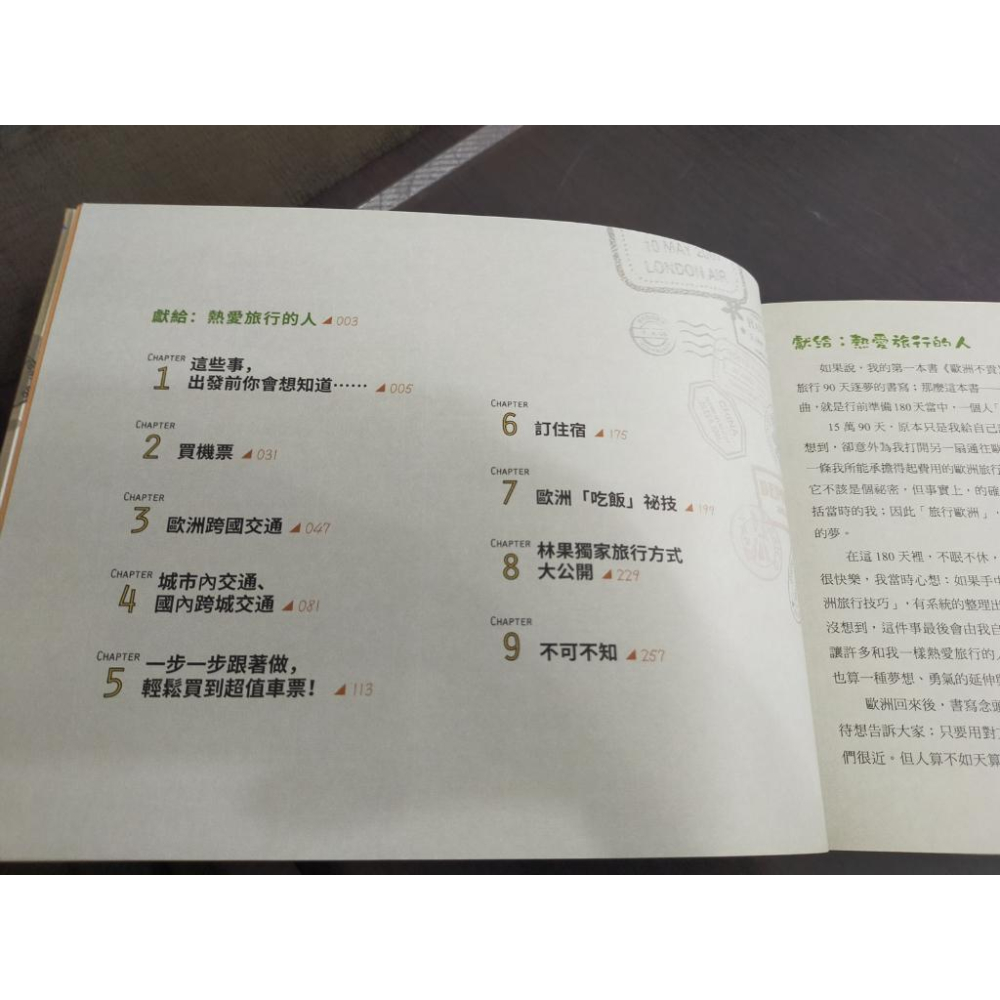 獻給：熱愛旅行的人 003
CHAPTER
1
這些事，
出發前你會想知道…… 005
CHAPTER
2 買機票 031
CHAPTER
3 歐洲跨國交通 047
CHAPTER
4
城市內交通、
國內跨城交通 081
CHAPTER
5
一步一步跟著做，
輕鬆買到超值車票！ 113
CHAPTER
6 訂住宿 175
CHAPTER
7 歐洲「吃飯」祕技 199
CHAPTER
8
林果獨家旅行方式
大公開 229
CHAPTER
9 不可不知 257
LONDON AIR
獻給：熱愛旅行的人
如果說，我的第一本書《歐洲不貴
旅行90天逐夢的書寫；那麼這本書——
曲，就是行前準備180天當中，一個人「
15萬90天，原本只是我給自己
想到，卻意外為我打開另一扇通往
一條我所能承擔得起費用的歐洲旅行
它不該是個祕密，但事實上，的確
括當時的我；因此「旅行歐洲」，
的夢。
在這180天裡，不眠不休，
很快樂，我當時心想：如果手中
洲旅行技巧」，有系統的整理出
沒想到，這件事最後會由我自
讓許多和我一樣熱愛旅行的人
也算一種夢想、勇氣的延伸
歐洲回來後，書寫念頭
待想告訴大家：只要用對
們很近。但人算不如天算